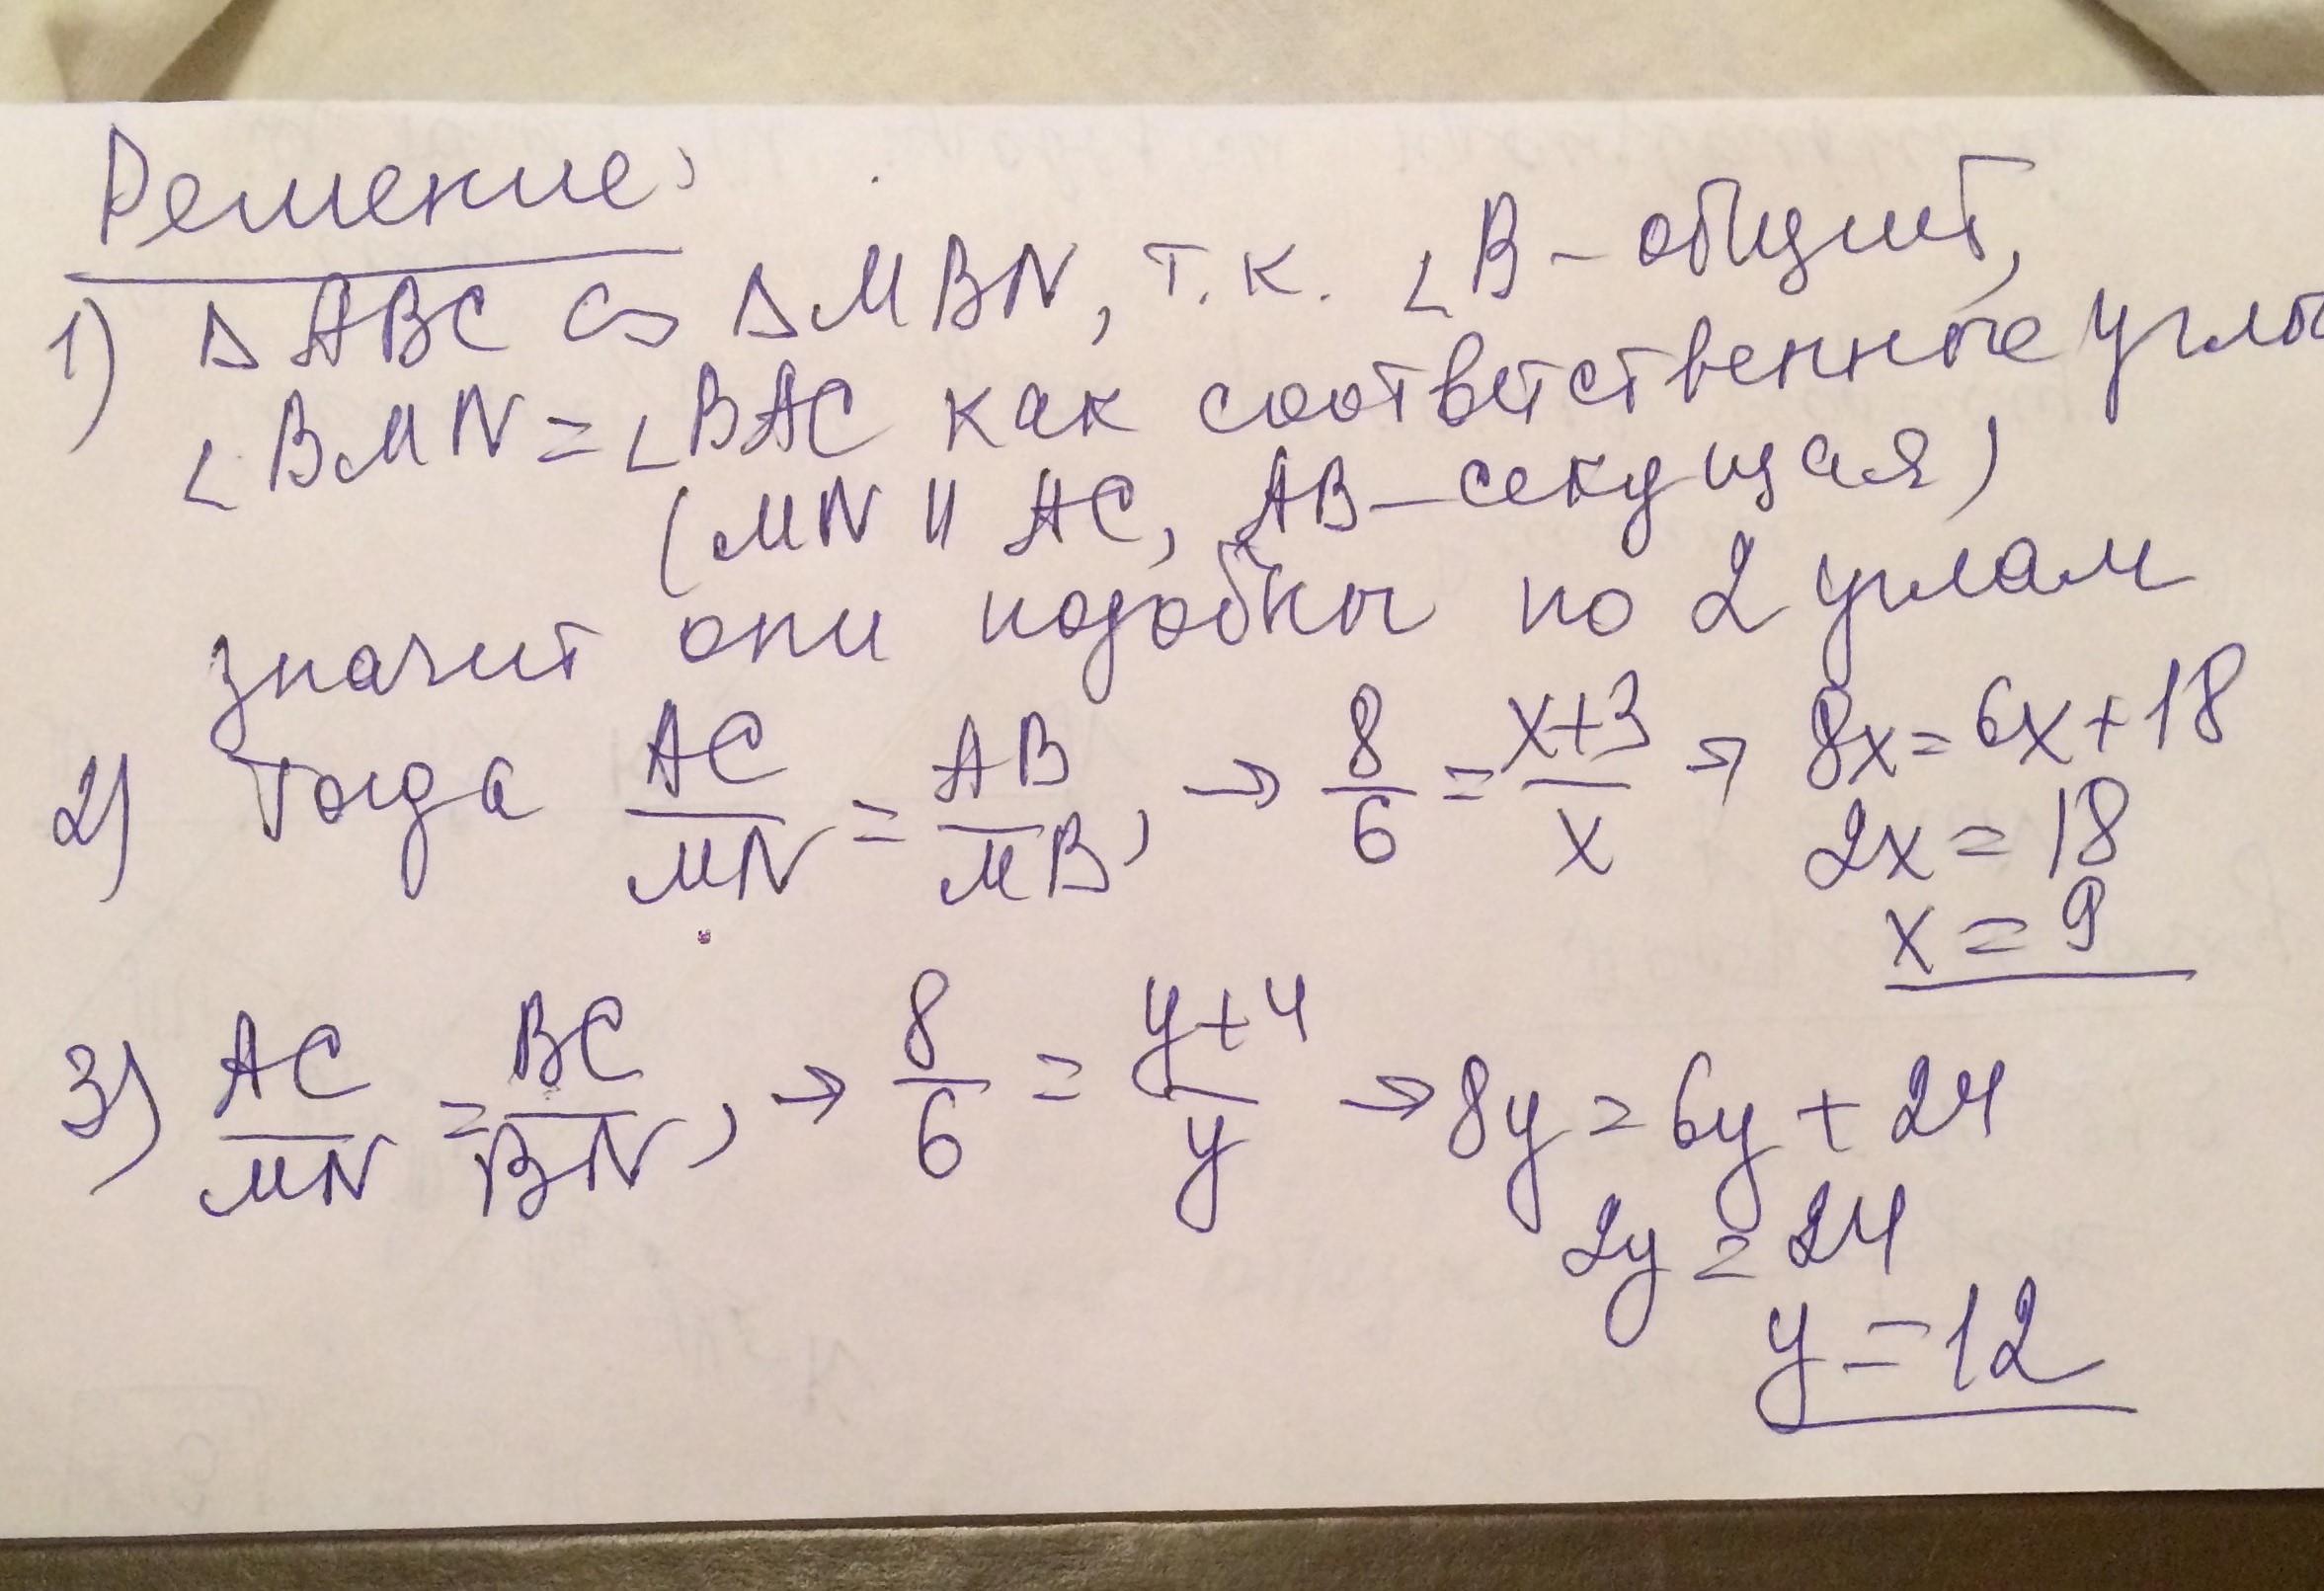 Решение:
1) Δ ABC ∽ Δ MBN, т.к. ∠B – общий,
∠BMN = ∠BAC как соответственные углы
(MN || AC, AB – секущая)
значит они подобны по 2 углам
2) Тогда AC/MN = AB/MB, → 8/6 = x+3/x → 8x = 6x + 18
2x = 18
x = 9
3) AC/MN = BC/BN, → 8/6 = y+4/y → 8y = 6y + 24
2y = 24
y = 12